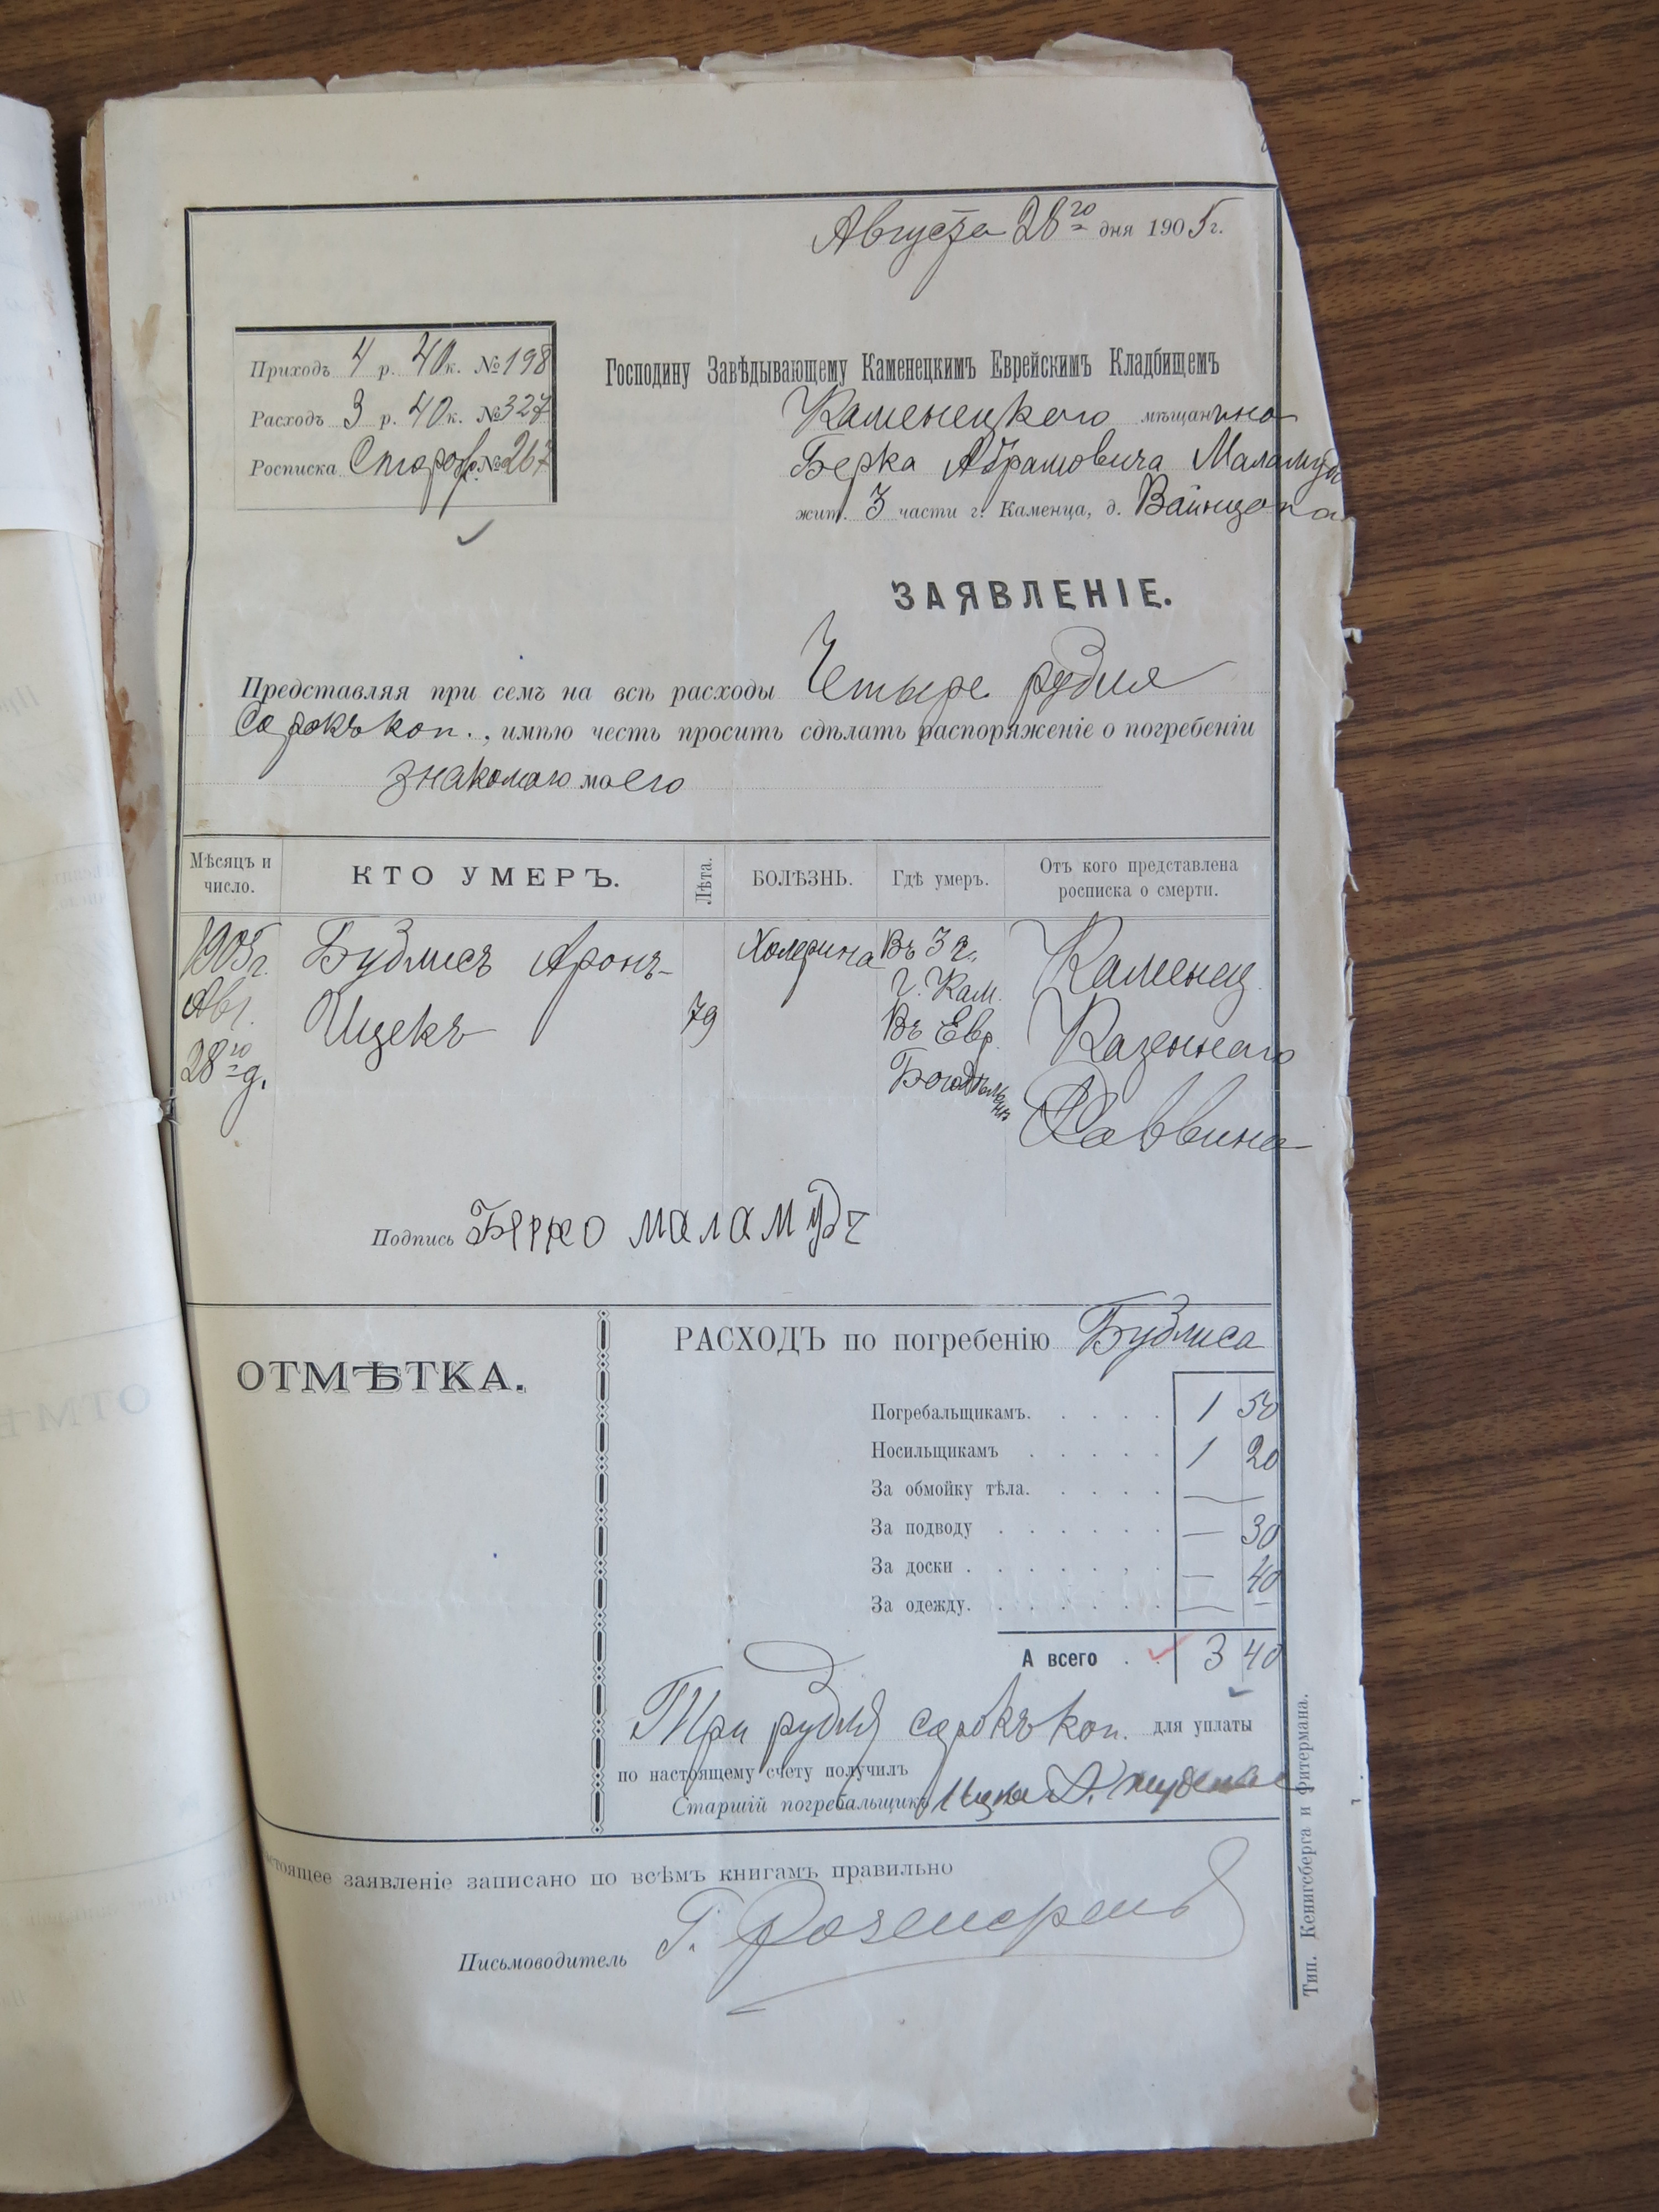 Августа 28го дня 1905 г.
Приходъ 4 р. 40 к. № 198
Расходъ 3 р. 40 к. № 327
Росписка № 267
Господину Завѣдывающему Каменецкимъ Еврейскимъ Кладбищемъ
Каменецкого мѣщанина
Берка Абрамовича Маламуда
жит. 3 части г. Каменца, д. Вайнцопа
ЗАЯВЛЕНІЕ.
Представляя при семъ на всѣ расходы Четыре рубля
сорокъ коп., имѣю честь просить сдѣлать распоряженіе о погребеніи
знакомаго моего
Мѣсяцъ и число.
КТО УМЕРЪ.
Лѣта.
БОЛѢЗНЬ.
Гдѣ умеръ.
Отъ кого представлена росписка о смерти.
1905 г. Авг. 28го д.
Будлисъ Аронъ-
Ицекъ
79
Холерина
Въ 3 ч.
г. Кам.
Въ Евр.
Богадѣльнѣ
Каменец.
Казеннаго
Раввина
Подпись Берко маламудъ
ОТМѢТКА.
РАСХОДЪ по погребенію Будлиса
Погребальщикамъ. . . . . 1 50
Носильщикамъ . . . . . 1 20
За обмойку тѣла. . . . . —
За подводу . . . . . . — 30
За доски . . . . . . . — 40
За одежду. . . . . . . — —
А всего . . 3 40
Три рубля сорокъ коп. для уплаты
по настоящему счету получилъ
Старшій погребальщикъ
стоящее заявленіе записано по всѣмъ книгамъ правильно
Письмоводитель Г. Розенгренъ
Тип. Кенигсберга и Фитермана.